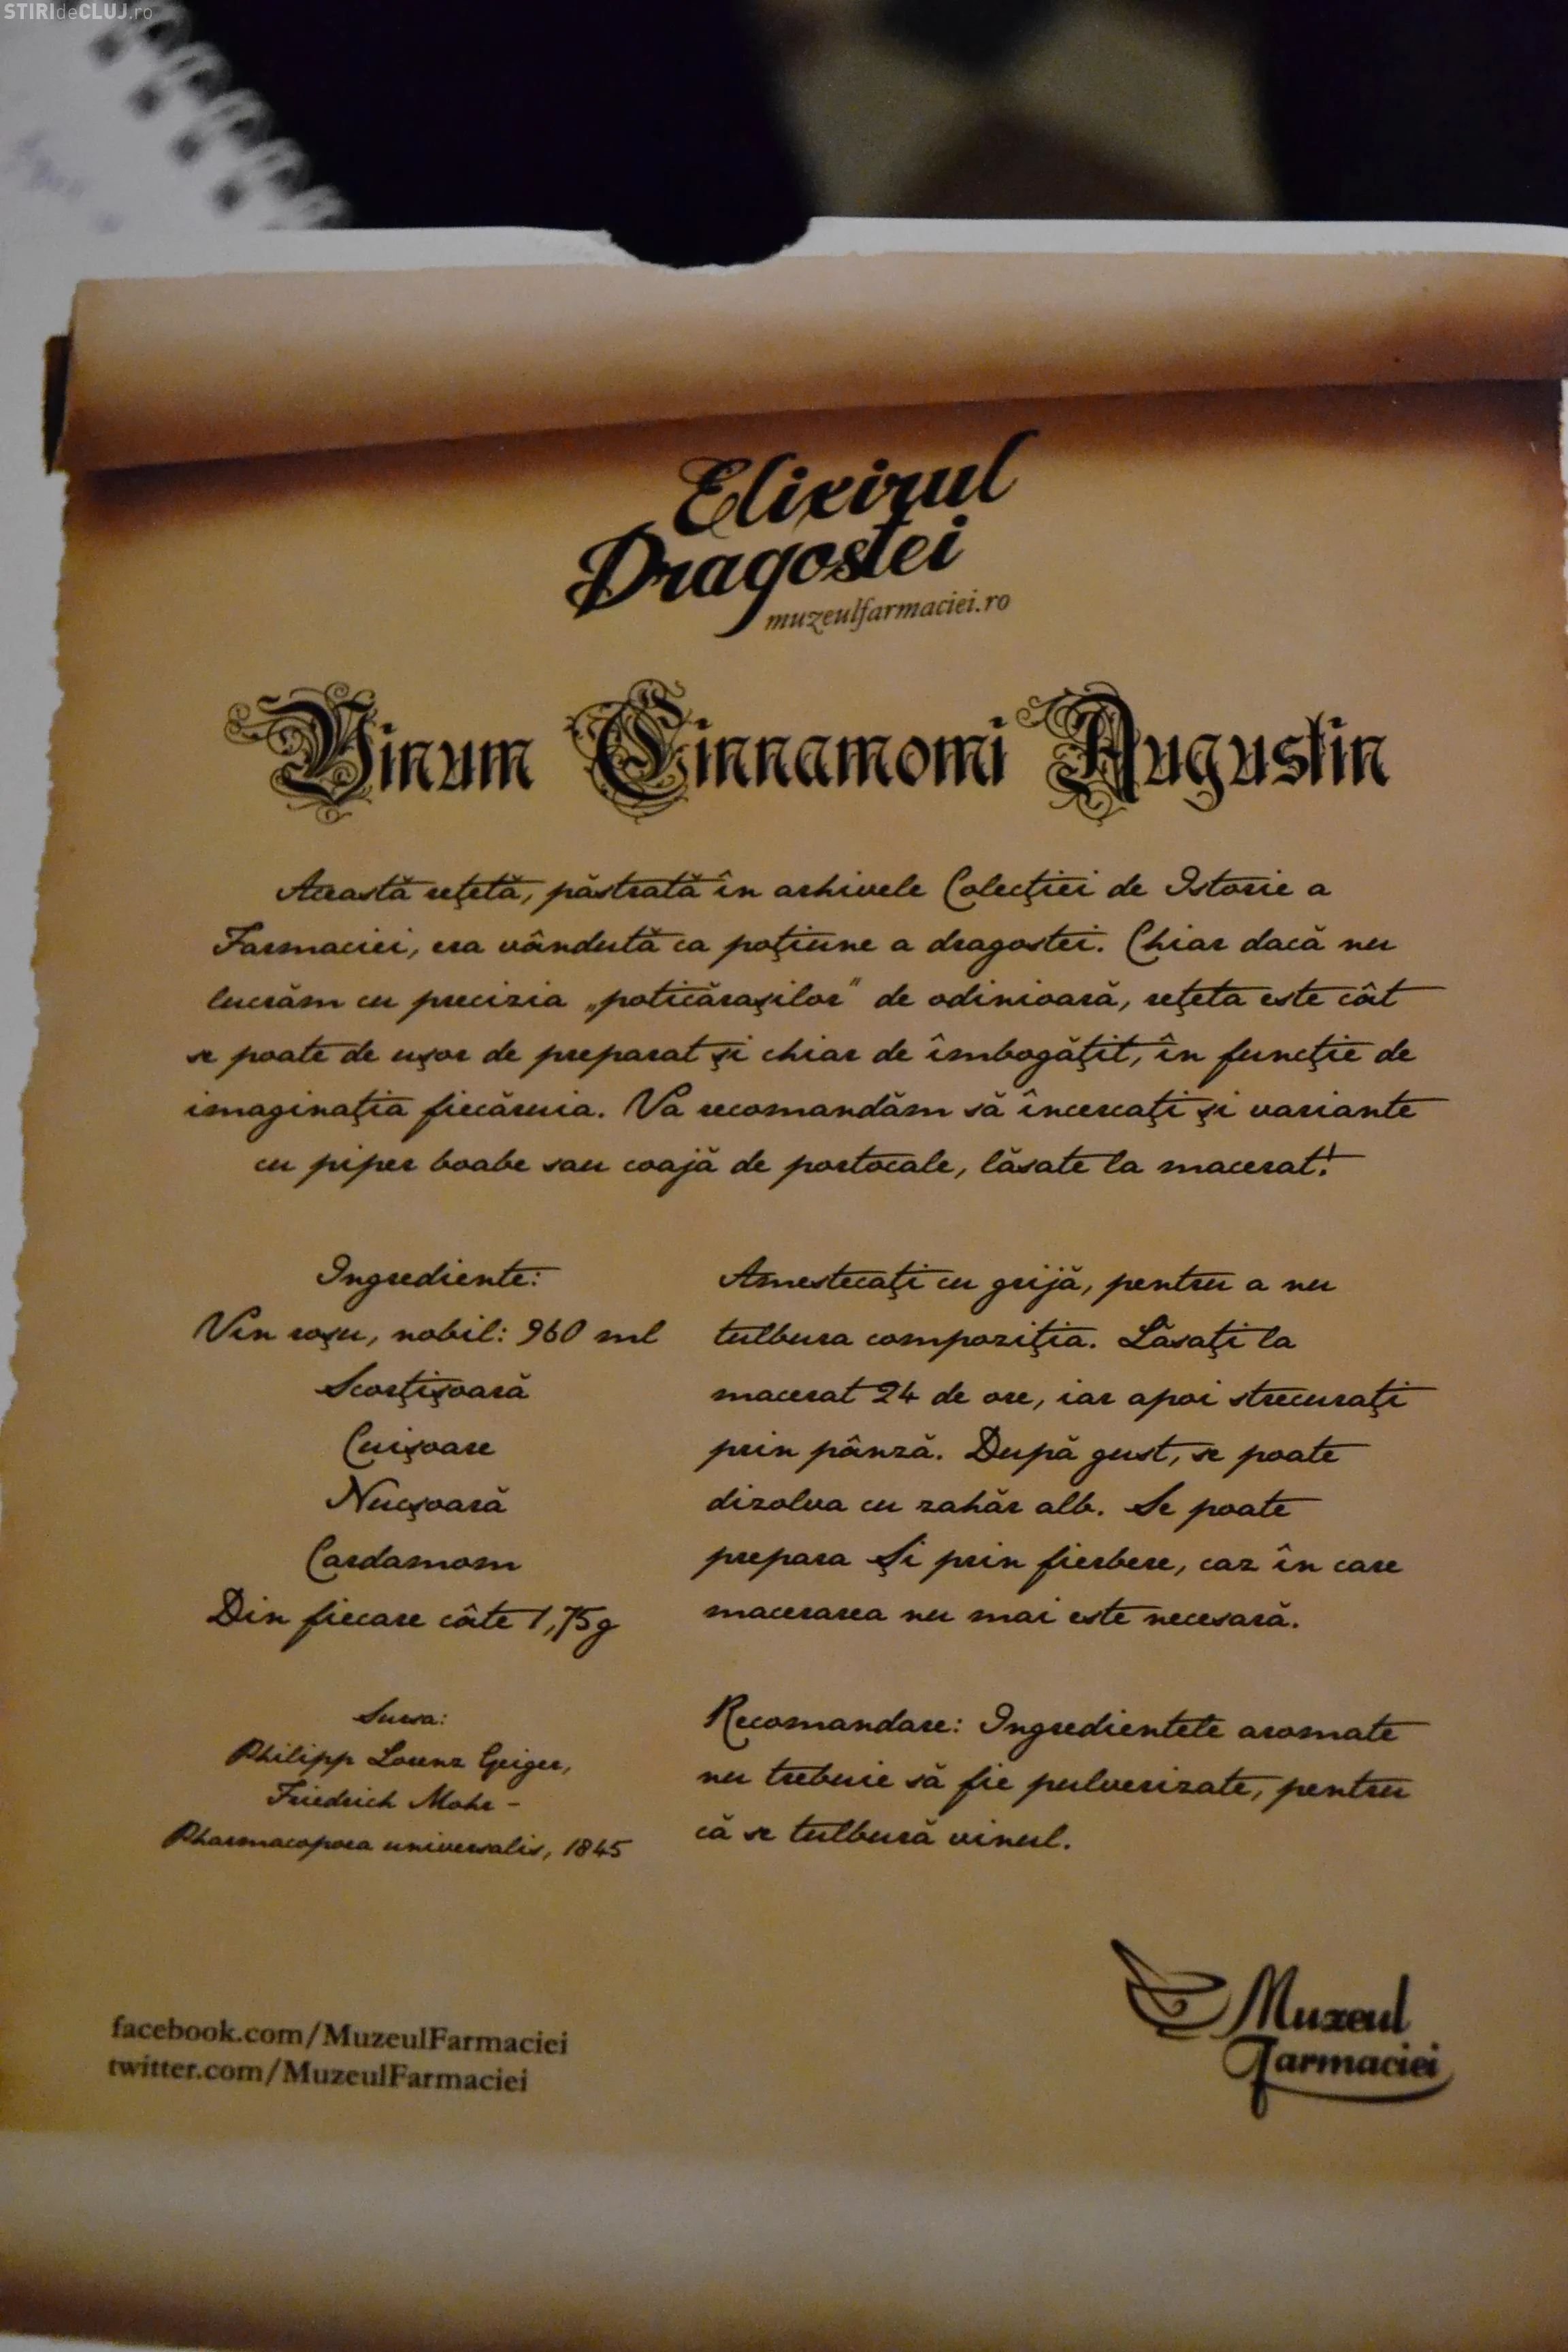 STIRIdeCLUJ.ro
Elixirul
Dragostei
muzeulfarmaciei.ro
Vinum Cinnamomi Augustin
Această reţetă, păstrată în arhivele Colecţiei de Istorie a
Farmaciei, era vândută ca poţiune a dragostei. Chiar dacă nu
lucrăm cu precizia „poticăraşilor" de odinioară, reţeta este cât
se poate de uşor de preparat şi chiar de îmbogăţit, în funcţie de
imaginaţia fiecăruia. Va recomandăm să încercaţi şi variante
cu piper boabe sau coajă de portocale, lăsate la macerat!
Ingrediente:
Vin roşu, nobil: 960 ml
Scorţişoară
Cuişoare
Nucşoară
Cardamom
Din fiecare câte 1,75g
Sursa:
Philipp Lorenz Geiger,
Friedrich Mohr -
Pharmacopoea universalis, 1845
Amestecaţi cu grijă, pentru a nu
tulbura compoziţia. Lăsaţi la
macerat 24 de ore, iar apoi strecuraţi
prin pânză. După gust, se poate
dizolva cu zahăr alb. Se poate
prepara Şi prin fierbere, caz în care
macerarea nu mai este necesară.
Recomandare: Ingredientele aromate
nu trebuie să fie pulverizate, pentru
că se tulbură vinul.
facebook.com/MuzeulFarmaciei
twitter.com/MuzeulFarmaciei
Muzeul
Farmaciei